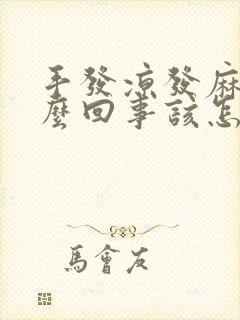 手發涼發麻
麼回事該怎
馬會友